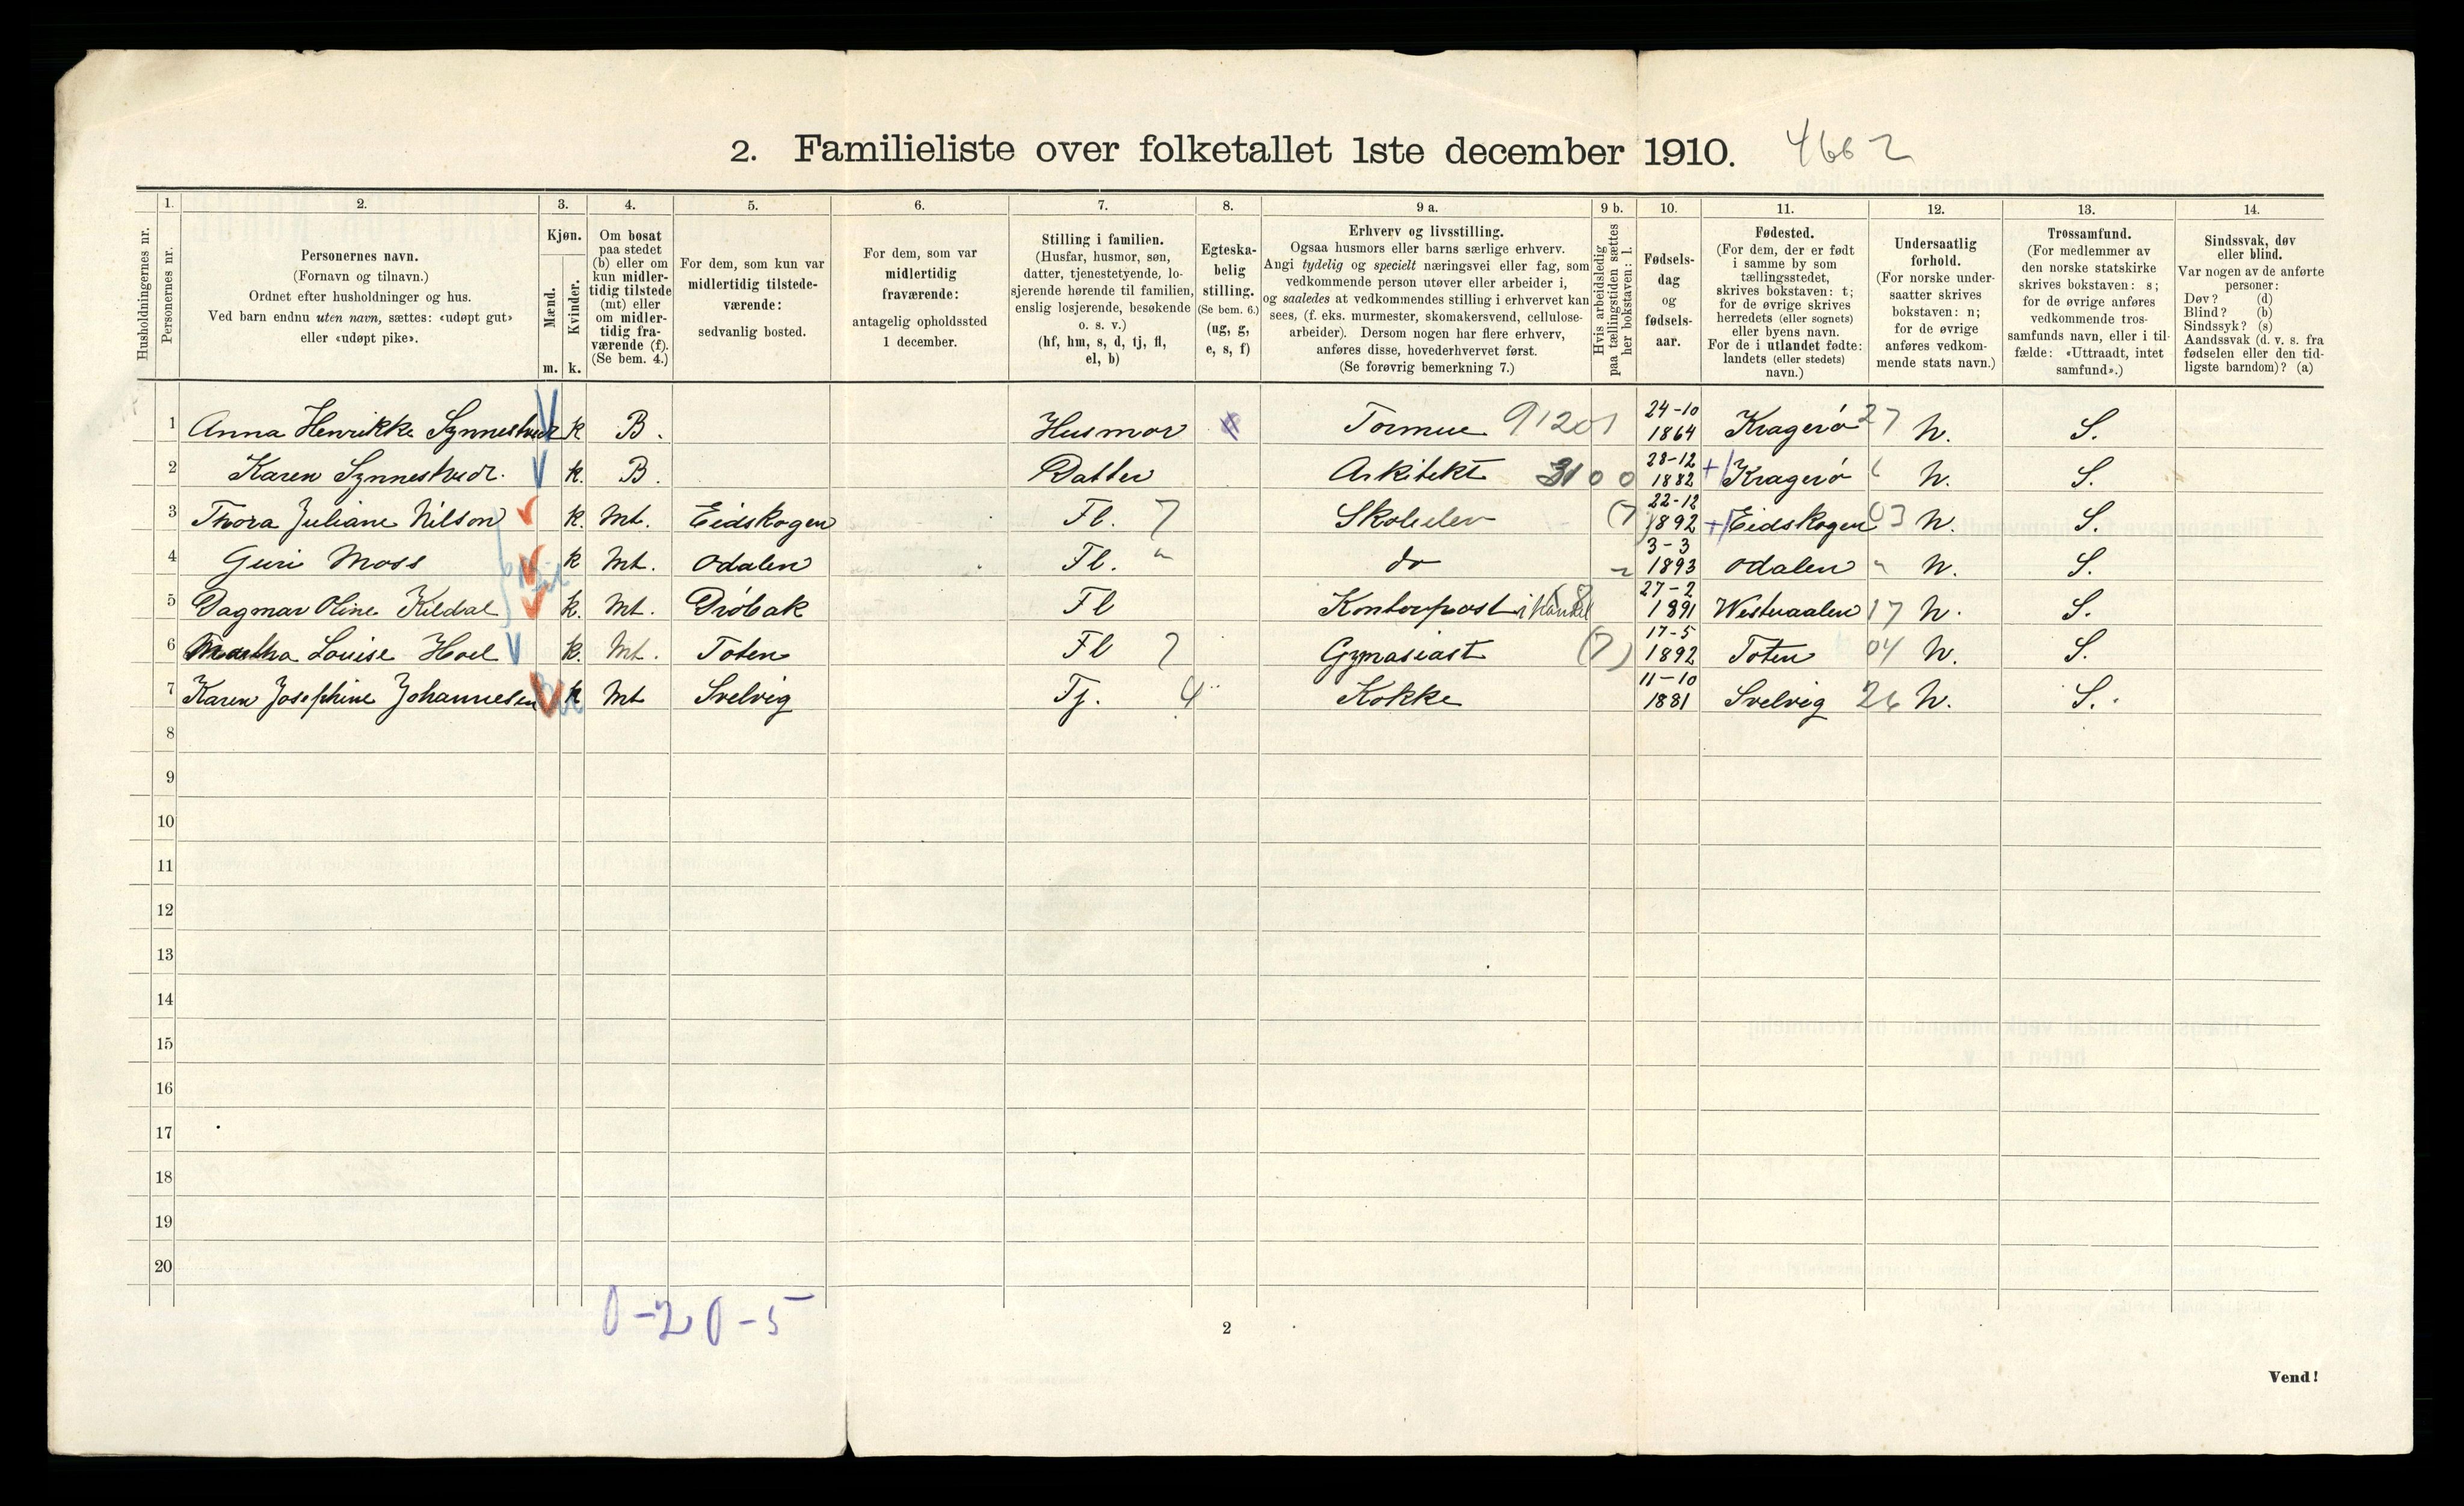 2. Familieliste over folketallet 1ste december 1910. 4662
Husholdningernes nr.
1. Personernes nr.
2. Personernes navn.
(Fornavn og tilnavn.)
Ordnet efter husholdninger og hus.
Ved barn endnu uten navn, sættes: «udøpt gut»
eller «udøpt pike».
3. Kjøn.
Mænd. m.
Kvinder. k.
4. Om bosat
paa stedet
(b) eller om
kun midler-
tidig tilstede
(mt) eller
om midler-
tidig fra-
værende (f).
(Se bem. 4.)
5. For dem, som kun var
midlertidig tilstede-
værende:
sedvanlig bosted.
6. For dem, som var
midlertidig
fraværende:
antagelig opholdssted
1 december.
7. Stilling i familien.
(Husfar, husmor, søn,
datter, tjenestetyende, lo-
sjerende hørende til familien,
enslig losjerende, besøkende
o. s. v.)
(hf, hm, s, d, tj, fl,
el, b)
8. Egteska-
belig
stilling.
(Se bem. 6.)
(ug, g,
e, s, f)
9 a. Erhverv og livsstilling.
Ogsaa husmors eller barns særlige erhverv.
Angi tydelig og specielt næringsvei eller fag, som
vedkommende person utøver eller arbeider i,
og saaledes at vedkommendes stilling i erhvervet kan
sees, (f. eks. murmester, skomakersvend, cellulose-
arbeider). Dersom nogen har flere erhverv,
anføres disse, hovederhvervet først.
(Se forøvrig bemerkning 7.)
9 b. Hvis arbeidsledig
paa tællingstiden sættes
her bokstaven: l.
10. Fødsels-
dag
og
fødsels-
aar.
11. Fødested.
(For dem, der er født
i samme by som
tællingsstedet,
skrives bokstaven: t;
for de øvrige skrives
herredets (eller sognets)
eller byens navn.
For de i utlandet fødte:
landets (eller stedets)
navn.)
12. Undersaatlig
forhold.
(For norske under-
saatter skrives
bokstaven: n;
for de øvrige
anføres vedkom-
mende stats navn.)
13. Trossamfund.
(For medlemmer av
den norske statskirke
skrives bokstaven: s;
for de øvrige anføres
vedkommende tros-
samfunds navn, eller i til-
fælde: «Uttraadt, intet
samfund».)
14. Sindssvak, døv
eller blind.
Var nogen av de anførte
personer:
Døv? (d)
Blind? (b)
Sindssyk? (s)
Aandssvak (d. v. s. fra
fødselen eller den tid-
ligste barndom)? (a)
1 Anna Henrikke Synnestvedt k B. Husmor Formue 91201 24-10 1864 Kragerø 27 N. S.
2 Karen Synnestvedt. k. B. Datter Arkitekt 3100 28-12 1882 + Kragerø N. S.
3 Thora Juliane Nilson k. Mt. Eidskogen Fl. 7 Skoleelev (7) 22-12 1892 + Eidskogen 03 N. S.
4 Guri Moss k Mt. Odalen Fl. " do 3-3 1893 Odalen " N. S.
5 Dagmar Oline Kildal k. Mt. Drøbak Fl Kontorpost i Handel 27-2 1891 Westraalen 17 N. S.
6 Martha Louise Hoel k. Mt. Toten Fl 7 Gymnasiast (7) 17-5 1892 Toten 04 N. S.
7 Karen Josephine Johannesen k Mt Svelvig Tj. 4 Kokke 11-10 1881 Svelvig 26 N. S.
8
9
10
11
12
13
14
15
16
17
18
19
20
0-2 0-5
2
Vend!